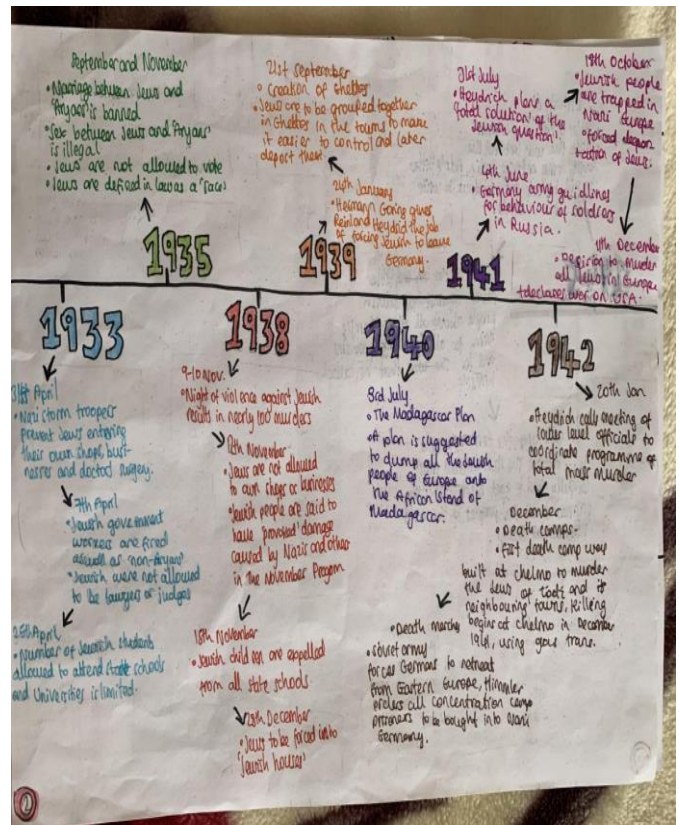 September and November
• Marriage between Jews and
'Aryans' is banned
• Sex between Jews and 'Aryans'
is illegal
• Jews are not allowed to vote
• Jews are defined in law as a 'race'
1935
21st September
• Creation of Ghettos
• Jews are to be grouped together
in Ghettos in the towns to make
it easier to control and later
deport them
24th January
• Hermann Goring gives
Reinland Heydrid the job
of forcing Jewish to leave
Germany.
1939
31st July
• Heydrich plans a
'total solution' of the
Jewish question'.
6th June
• Germany army guidlines
for behaviour of soldiers
in Russia.
1941
18th October
• Jewish people
are trapped in
Nazi Europe
• forced depor
tation of Jews.
11th December
• Decision to murder
all Jews in Europe
+ declares war on USA.
1933
April
• Nazi storm troopers
prevent Jews entering
their own shops, busi-
nesses and doctors surgery.
7th April
• Jewish government
workers are fired
as 'non-Aryans'
• Jewish were not allowed
to be lawyers or judges
25th April
• Number of Jewish students
allowed to attend state schools
and Universities is limited.
1938
9-10 Nov.
• Night of violence against Jewish
results in nearly 100 murders
12th November
• Jews are not allowed
to own shops or businesses
• Jewish people are said to
have 'provoked' damage
caused by Nazis and others
in the November Progem
15th November
• Jewish children are expelled
from all state schools
28th December
• Jews to be forced into
'Jewish houses'
1940
3rd July
• The Madagascar Plan
• A plan is suggested
to dump all the Jewish
people of Europe onto
the African Island of
Madagascar.
1942
20th Jan
• Heydrich calls meeting of
lower level officials to
coordinate programme of
total mass murder
December
• Death camps-
• First death camp was
built at chelmo to murder
the Jews of and it
neighbouring towns. Killing
begins at chelmo in December
1941, using gas
• Death marches
• Soviet army
forces Germans to retreat
from Eastern Europe, Himmler
orders all concentration camp
prisoners to be bought into Nazi
Germany.